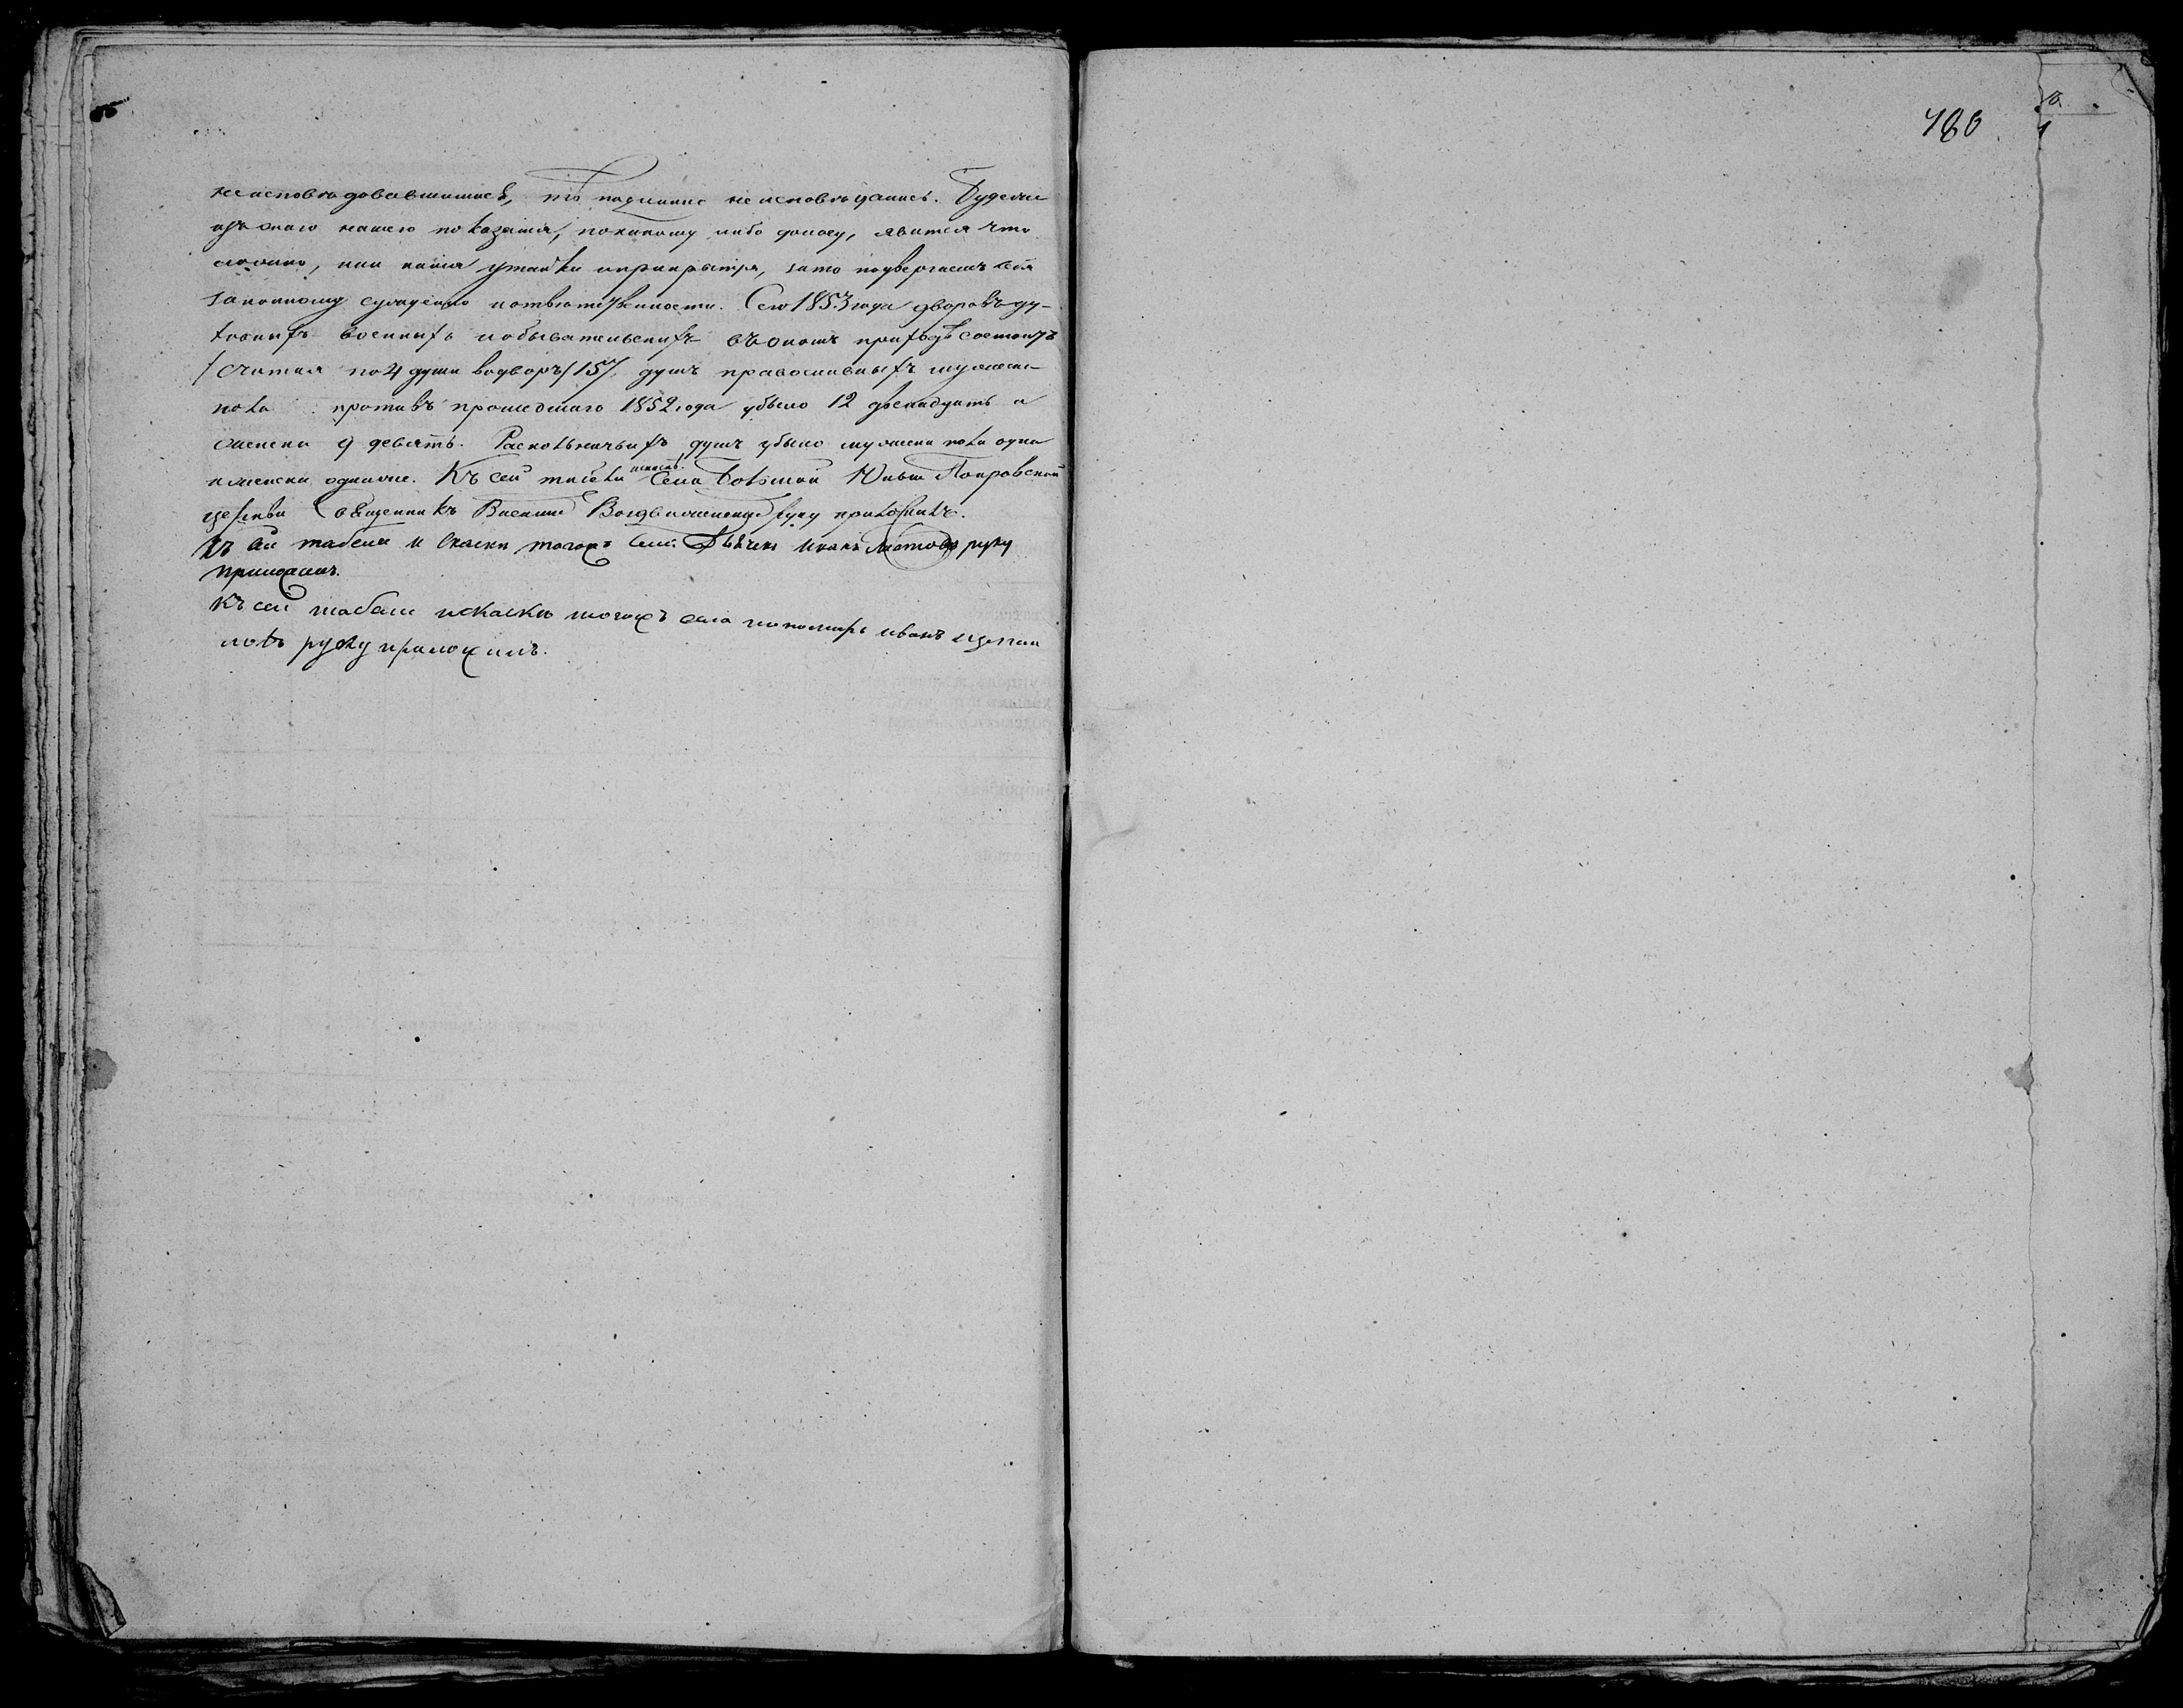 неисповѣдовавшимися, тѣ подлинно не исповѣдались. Будеже
изъ онаго нашего показанія, по какому либо доносу, явится что
ложно, или какая утайка и прикрытія, за то подвергаемъ себя
законному сужденію и отвѣтственности. Сего 1853 года дворовъ ду-
ховныхъ военныхъ и обывательскихъ въ ономъ приходѣ состоитъ
/считая по 4 души во дворъ/ 157. душъ православныхъ мужеска
пола противъ прошедшаго 1852 года убыло 12 двенадцать а
женска 9 девять. Раскольничьихъ душъ убыло мужеска пола одна
и женска одна же. Къ сей табели и скаскѣ Села Покровской
церкви Священникъ Василій Воздвиженскій руку приложилъ.
Къ сей табели и скаски тогожъ Села Дьячекъ Иванъ руку
приложилъ.
Къ сей табели и скаски тогожъ села пономарь иванъ
ловъ руку приложилъ.
480